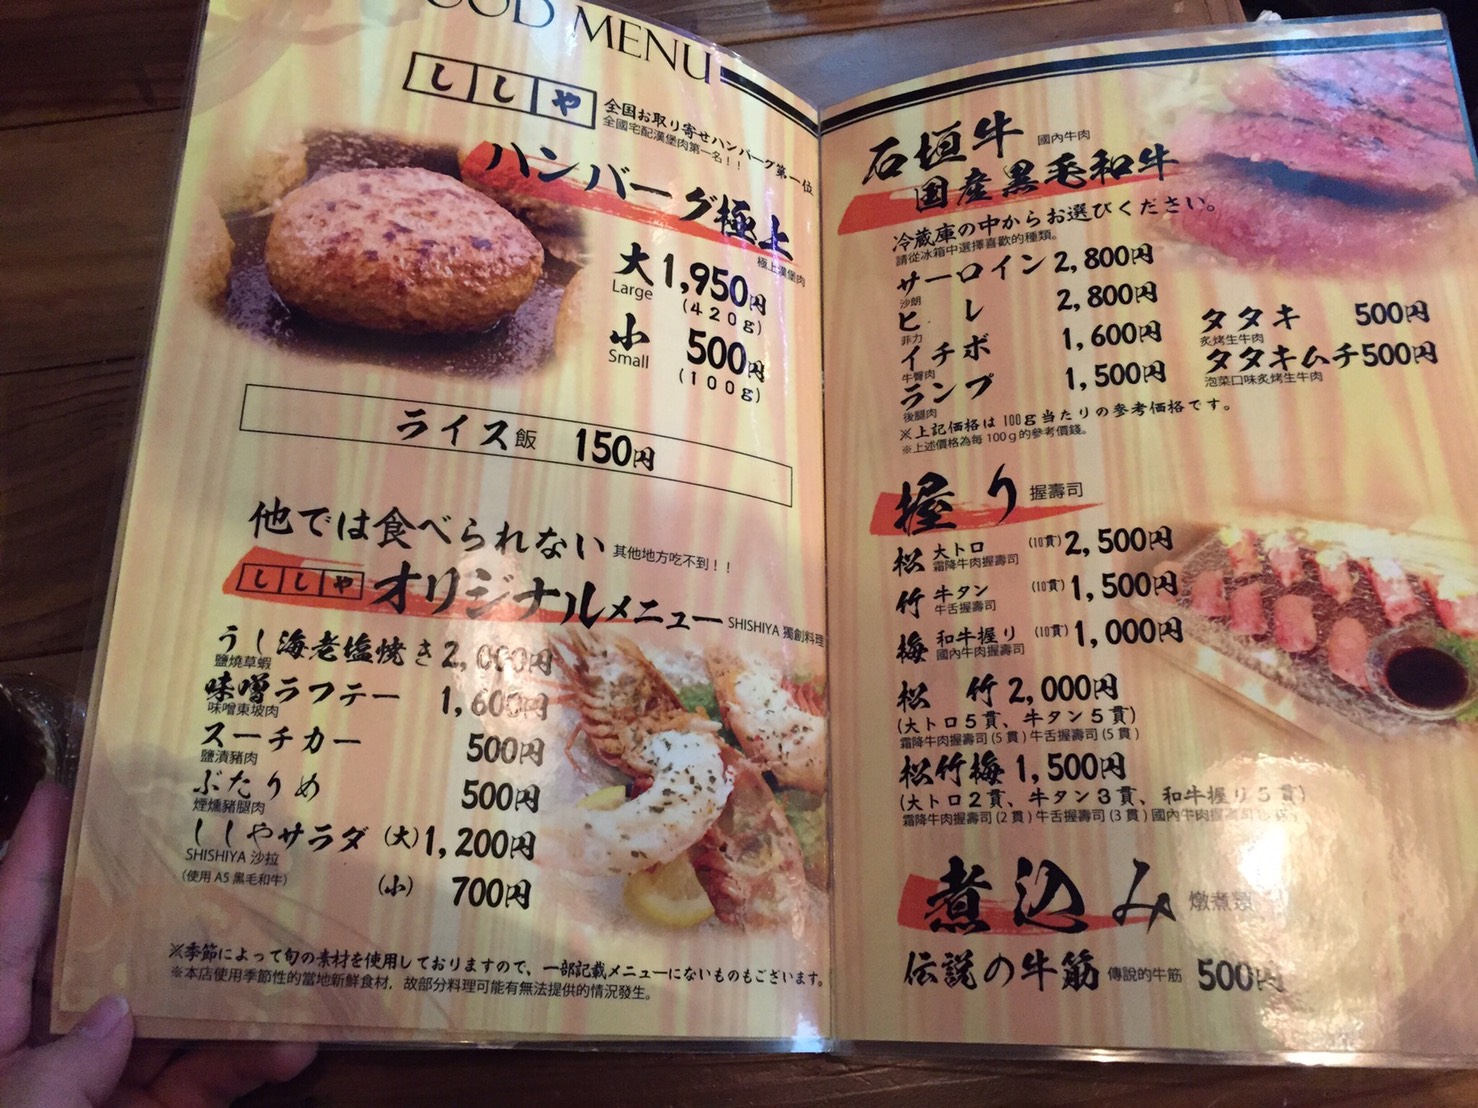 OOD MENU
ししや
全国お取り寄せハンバーグ第一位
全國宅配漢堡肉第一名！！
ハンバーグ極上
極上漢堡肉
大 1,950円
Large (420g)
小 500円
Small (100g)
ライス飯 150円
他では食べられない 其他地方吃不到！！
ししや オリジナルメニュー SHISHIYA 獨創料理
うし海老塩焼き 2,000円
鹽燒草蝦
味噌ラフテー 1,600円
味噌東坡肉
スーチカー 500円
鹽漬豬肉
ぶたりめ 500円
煙燻豬腿肉
ししやサラダ (大) 1,200円
SHISHIYA 沙拉
(使用 A5 黑毛和牛) (小) 700円
※季節によって旬の素材を使用しておりますので、一部記載メニューにないものもございます。
※本店使用季節性的當地新鮮食材，故部分料理可能有無法提供的情況發生。
石垣牛 國內牛肉
国産黒毛和牛
冷蔵庫の中からお選びください。
請從冰箱中選擇喜歡的種類。
サーロイン 2,800円
沙朗
ヒレ 2,800円
菲力
イチボ 1,600円
牛臀肉
ランプ 1,500円
後腿肉
タタキ 500円
炙烤生牛肉
タタキムチ 500円
泡菜口味炙烤生牛肉
※上記価格は 100g当たりの参考価格です。
※上述價格為每 100g的參考價錢。
握り 握壽司
松 大トロ (10貫) 2,500円
霜降牛肉握壽司
竹 牛タン (10貫) 1,500円
牛舌握壽司
梅 和牛握り (10貫) 1,000円
國內牛肉握壽司
松 竹 2,000円
(大トロ５貫、牛タン５貫)
霜降牛肉握壽司 (5 貫) 牛舌握壽司 (5 貫)
松竹梅 1,500円
(大トロ２貫、牛タン３貫、和牛握り５貫)
霜降牛肉握壽司 (2 貫) 牛舌握壽司 (3 貫) 國內牛肉握壽司
煮込み 燉煮類
伝説の牛筋 傳說的牛筋 500円